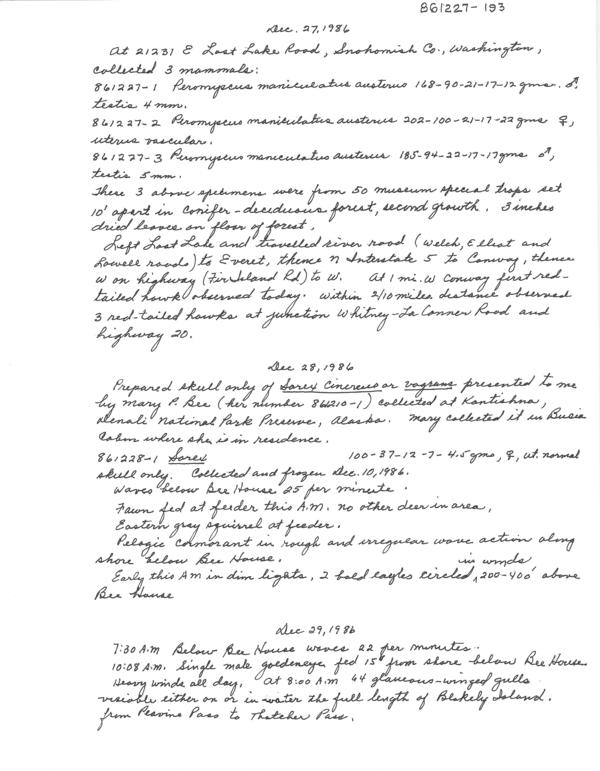 861227-193
Dec. 27, 1986
At 21231 E Lost Lake Road, Snohomish Co., Washington,
collected 3 mammals:
861227-1 Peromyscus maniculatus austerus 168-90-21-17-12 gms. ♂,
testis 4 mm.
861227-2 Peromyscus maniculatus austerus 202-100-21-17-22 gms ♀,
uterus vascular.
861227-3 Peromyscus maniculatus austerus 185-94-22-17-17 gms ♂,
testis 5 mm.
These 3 above specimens were from 50 museum special traps set
10' apart in conifer-deciduous forest, second growth. 3 inches
dried leaves on floor of forest.
Left Lost Lake and travelled river road (Welch, Elliot and
Lowell roads) to Everet, thence N Interstate 5 to Conway, thence
W on highway (Fir Island Rd) to W. At 1 mi. W Conway first red-
tailed hawk observed today. Within 2/10 miles distance observed
3 red-tailed hawks at junction Whitney-La Conner Road and
highway 20.
Dec 28, 1986
Prepared skull only of Sorex cinereus or vagrans presented to me
by Mary P. Bee (her number 861210-1) collected at Kantishna,
Denali National Park Preserve, Alaska. Mary collected it in Busia
Cabin where she is in residence.
861228-1 Sorex 100-37-12-7-4.5 gms, ♀, ut. normal
skull only. Collected and frozen Dec. 10, 1986.
Waves below Bee House 25 per minute.
Fawn fed at feeder this A.M. no other deer in area,
Eastern gray squirrel at feeder.
Pelagic Cormorant in rough and irregular wave action along
shore below Bee House. in winds
Early this AM in dim lights, 2 bald eagles circled, 200-400' above
Bee House
Dec 29, 1986
7:30 A.M Below Bee House waves 22 per minutes.
10:08 A.M. Single male goldeneye fed 15' from shore below Bee House
Heavy winds all day. At 8:00 A.M 64 glaucous-winged gulls
visible either on or in water the full length of Blakely Island.
from Peavine Pass to Thatcher Pass.